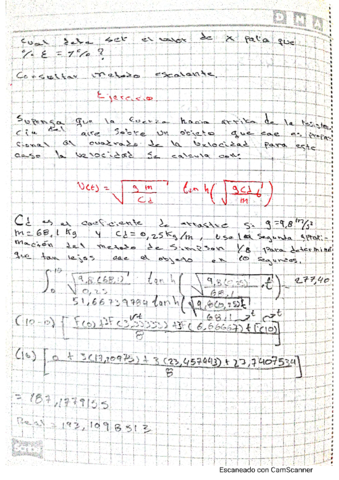 DMA
Cual debe ser el valor de x para que
% E = 7% ?
Consultar metodo escalante.
Ejercicio.
Suponga que la fuerza hacia arriba de la
del aire sobre un objeto que cae es
cional al cuadrado de la velocidad para este
caso la velocidad se calcula con:
V(t) = √(g m / Cd) tan h (√(g Cd / m) t)
Cd es el coeficiente de arrastre si g = 9,8 m/s²
m = 68,1 Kg y Cd = 0,25 Kg/m, usa la segunda
mación del metodo de Simpson 3/8 para determinar
que tan lejos cae el objeto en 10 segundos.
∫₀¹⁰ √(9,8(68,1) / 0,25) tan h (√(9,8(0,25) / 68,1) . t) =
51,66739784 tan h (√(9,8(0,25) / 68,1) t)
(10-0) [f(0) + 3f(3,33333) + 3f(6,66667) + f(10) / 8]
(10) [0 + 3( + 3(23,457493) + / 8]
Real = 193,1098513
Scribe
Escaneado con CamScanner